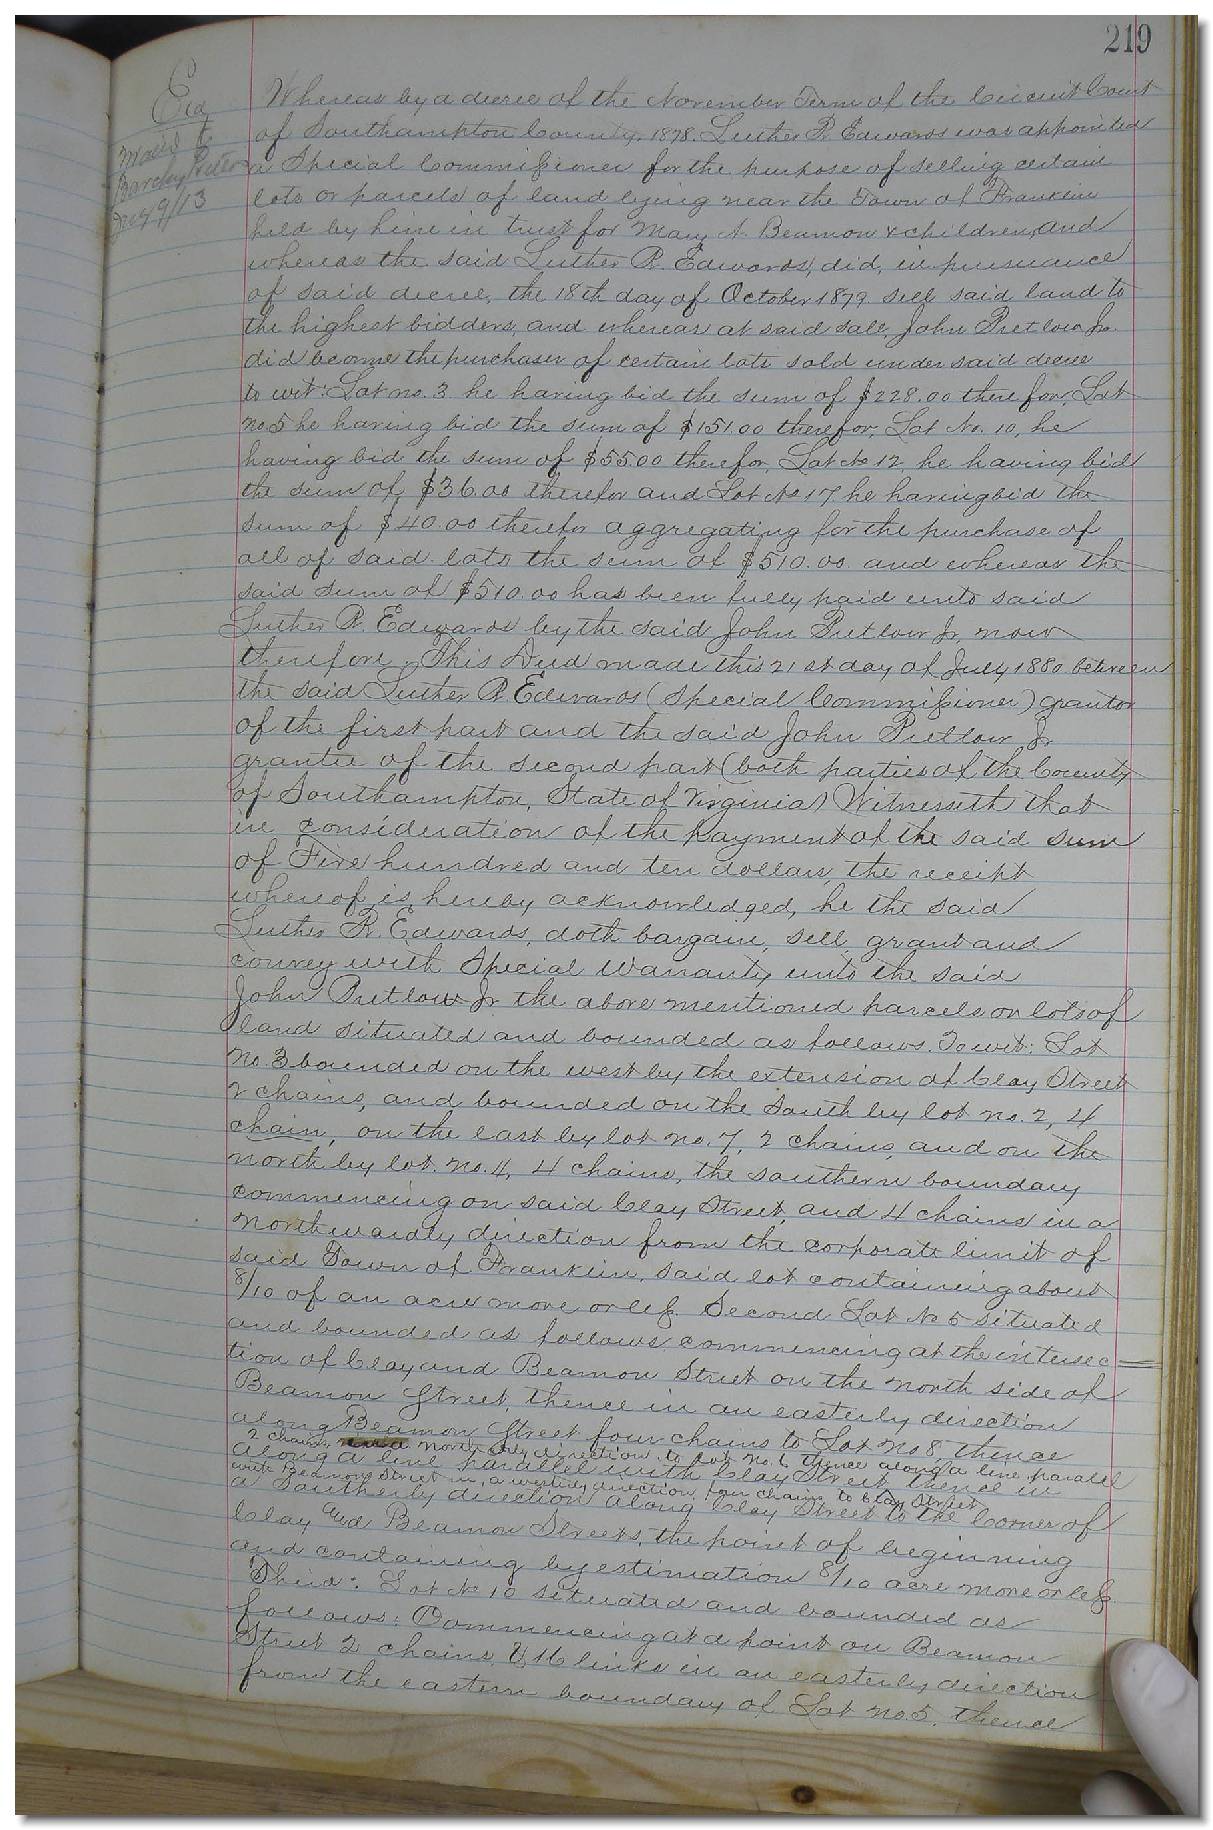 219
Exd
Mailed to
Barclay Pretlow
Jany 9/13
Whereas by a decree of the November Term of the Circuit Court
of Southampton County, 1878. Luther R. Edwards was appointed
a Special Commissioner for the purpose of selling certain
lots or parcels of land lying near the Town of Franklin
held by him in trust for Mary A. Beamon & children, and
whereas the said Luther R. Edwards, did, in pursuance
of said decree, the 18th day of October 1879 sell said land to
the highest bidders, and whereas at said sale, John Pretlow Jr.
did become the purchaser of certain lots sold under said decree
to wit: Lot no. 3 he having bid the sum of $228.00 therefor, Lot
no. 5 he having bid the sum of $151.00 therefor, Lot No. 10, he
having bid the sum of $55.00 therefor, Lot No 12, he having bid
the sum of $36.00 therefor and Lot No 17 he having bid the
sum of $40.00 therefor aggregating for the purchase of
all of said lots the sum of $510.00 and whereas the
said sum of $510.00 has been fully paid unto said
Luther R. Edwards by the said John Pretlow Jr, now
therefore, This Deed made this 21st day of July 1880 between
the said Luther R. Edwards (Special Commissioner) grantor
of the first part and the said John Pretlow Jr
grantee of the second part (both parties of the County
of Southampton, State of Virginia) Witnesseth that
in consideration of the payment of the said sum
of Five hundred and ten dollars, the receipt
whereof is hereby acknowledged, he the said
Luther R. Edwards, doth bargain, sell, grant and
convey with Special Warranty unto the said
John Pretlow Jr the above mentioned parcels or lots of
land situated and bounded as follows. To wit: Lot
no. 3 bounded on the west by the extension of Clay Street
2 chains, and bounded on the South by lot no. 2, 4
chain, on the east by lot no. 7, 2 chains, and on the
north by lot. no. 4, 4 chains, the southern boundary
commencing on said Clay Street, and 4 chains in a
northwardly direction from the corporate limit of
said Town of Franklin, said lot containing about
8/10 of an acre more or less Second Lot No 5 situated
and bounded as follows, commencing at the intersec=
tion of Clay and Beamon Street on the north side of
Beamon Street, thence in an easterly direction
along Beamon Street four chains to Lot no 8 thence
2 chains northerly direction to lot no. 6 thence along a line parallel
along a line parallel with Clay Street thence in
with Beamon Street in a westerly direction four chains to Clay Street
a Southerly direction along Clay Street to the Corner of
Clay and Beamon Streets, the point of beginning
and containing by estimation 8/10 acre more or less
Third: Lot No 10 situated and bounded as
follows: Commencing at a point on Beamon
Street 2 chains & 16 links in an easterly direction
from the eastern boundary of Lot no. 5, thence